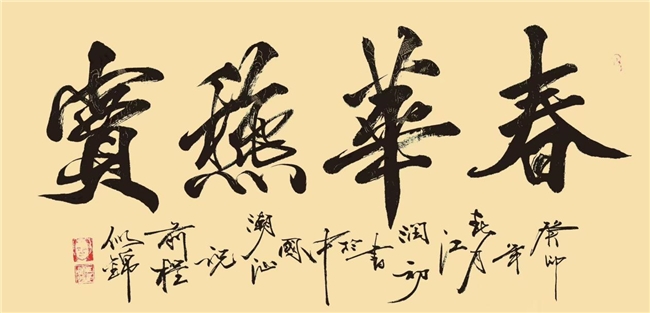 春華龝實
癸卯年春月江潤初書於中國潮汕祝前程似錦